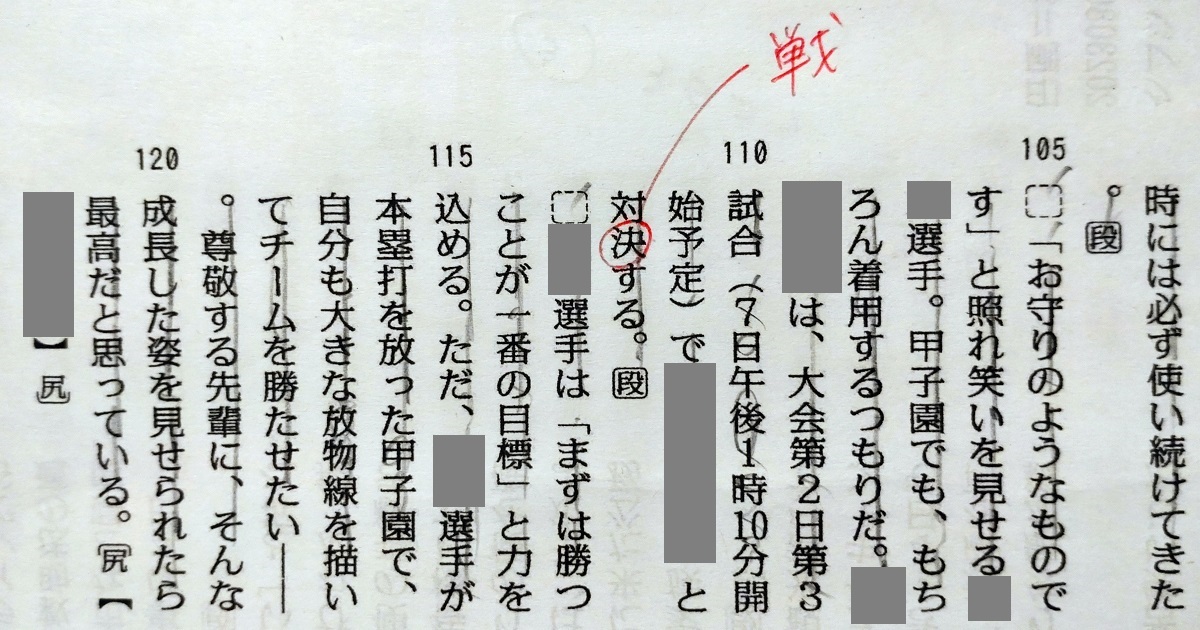 戦
時には必ず使い続けてきた
。段
105
「お守りのようなもので
す」と照れ笑いを見せる
選手。甲子園でも、もち
ろん着用するつもりだ。
は、大会第2日第3
110
試合(7日午後1時10分開
始予定)で と
対決する。段
選手は「まずは勝つ
ことが一番の目標」と力を
115
込める。ただ、 選手が
本塁打を放った甲子園で、
自分も大きな放物線を描い
てチームを勝たせたい――
。尊敬する先輩に、そんな
120
成長した姿を見せられたら
最高だと思っている。尻【
】尻